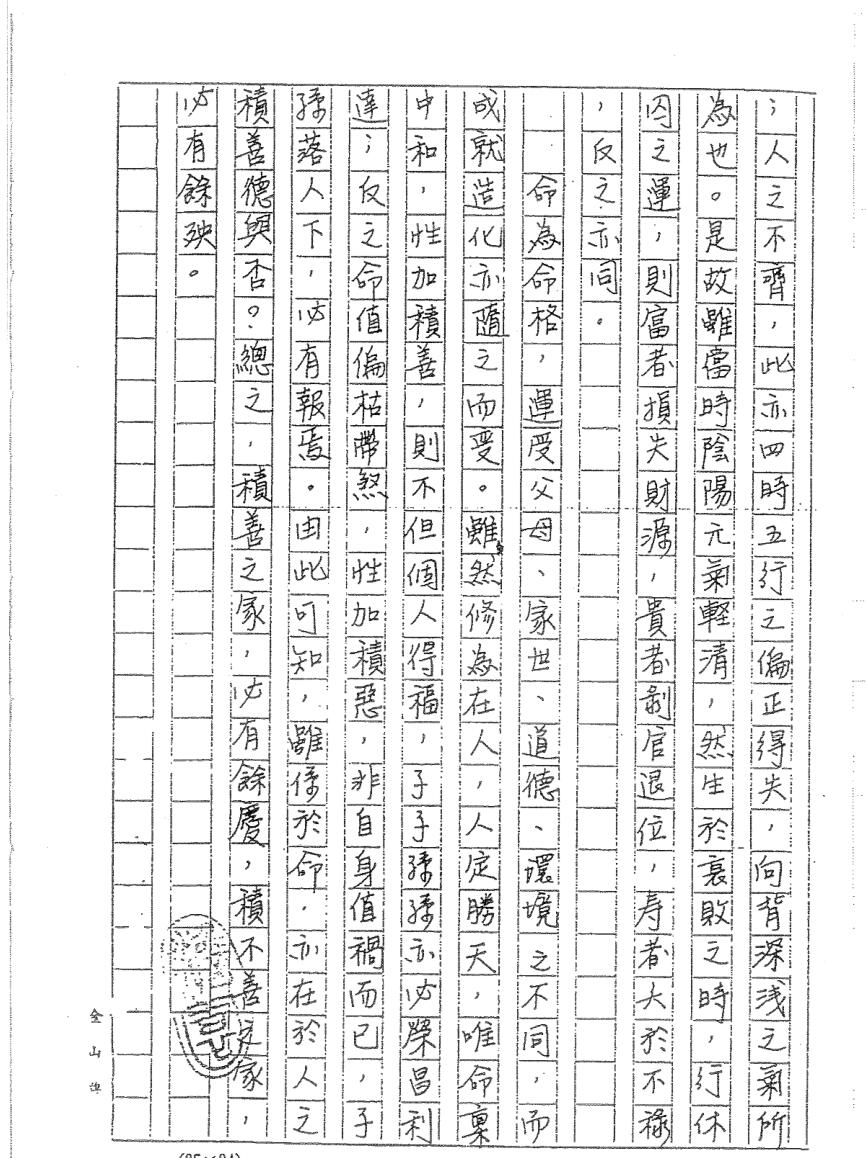 ；人之不齊，此亦四時五行之偏正得失，向背深浅之氣所
為也。是故雖當時陰陽元氣輕清，然生於衰敗之時，行休
囚之運，則富者損失財源，貴者剝官退位，寿者夭於不祿
，反之亦同。
命為命格，運受父母、家世、道德、環境之不同，而
成就造化亦隨之而受。雖然修為在人，人定勝天，唯命稟
中和，性加積善，則不但個人得福，子子孫孫亦必榮昌利
達；反之命值偏枯帶煞，性加積惡，非自身值禍而已，子
孫落人下，必有報焉。由此可知，雖係於命，亦在於人之
積善德與否？總之，積善之家，必有餘慶，積不善之家，
必有餘殃。
金山牌